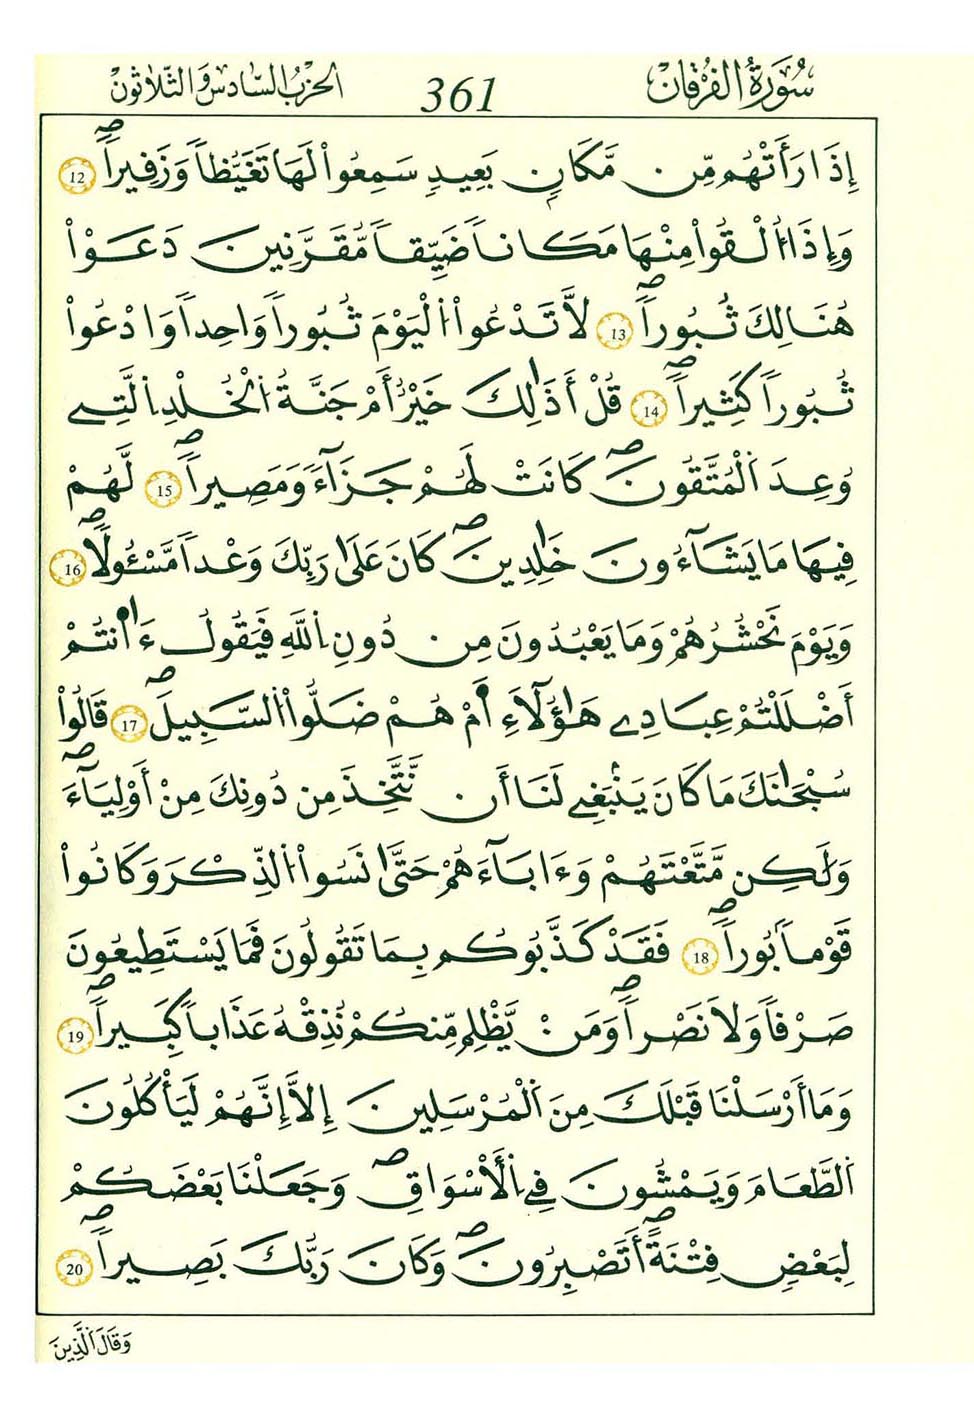 سُورَةُ الْفُرْقَانِ 361 الحزب السادس والثلاثون
إِذَا رَأَتْهُم مِّن مَّكَانِۭ بَعِيدٖ سَمِعُواْ لَهَا تَغَيُّظاٗ وَزَفِيراٗۖ 12
وَإِذَا أُلْقُواْ مِنْهَا مَكَاناٗ ضَيِّقاٗ مُّقَرَّنِينَ دَعَوْاْ
هُنَالِكَ ثُبُوراٗۖ 13 لَّا تَدْعُواْ اُ۬لْيَوْمَ ثُبُوراٗ وَٰحِداٗ وَادْعُواْ
ثُبُوراٗ كَثِيراٗۖ 14 قُلْ أَذَٰلِكَ خَيْرٌ أَمْ جَنَّةُ اُ۬لْخُلْدِ اِ۬لتِے
وُعِدَ اَ۬لْمُتَّقُونَۖ كَانَتْ لَهُمْ جَزَآءٗ وَمَصِيراٗۖ 15 لَّهُمْ
فِيهَا مَا يَشَآءُونَ خَٰلِدِينَۖ كَانَ عَلَىٰ رَبِّكَ وَعْداٗ مَّسْـُٔولاٗۖ 16
وَيَوْمَ نَحْشُرُهُمْ وَمَا يَعْبُدُونَ مِن دُونِ اِ۬للَّهِ فَيَقُولُ ءَا۬نتُمْ
أَضْلَلْتُمْ عِبَادِے هَٰٓؤُلَآءِ اَ۬مْ هُمْ ضَلُّواْ اُ۬لسَّبِيلَۖ 17 قَالُواْ
سُبْحَٰنَكَ مَا كَانَ يَنۢبَغِے لَنَا أَن نَّتَّخِذَ مِن دُونِكَ مِنْ أَوْلِيَآءَۖ
وَلَٰكِن مَّتَّعْتَهُمْ وَءَابَآءَهُمْ حَتَّىٰ نَسُواْ اُ۬لذِّكْرَ وَكَانُواْ
قَوْماَۢ بُوراٗۖ 18 فَقَدْ كَذَّبُوكُم بِمَا تَقُولُونَ فَمَا يَسْتَطِيعُونَ
صَرْفاٗ وَلَا نَصْراٗۖ وَمَنْ يَّظْلِم مِّنكُمْ نُذِقْهُ عَذَاباٗ كَبِيراٗۖ 19
وَمَا أَرْسَلْنَا قَبْلَكَ مِنَ اَ۬لْمُرْسَلِينَ إِلَّا إِنَّهُمْ لَيَأْكُلُونَ
اَ۬لطَّعَامَ وَيَمْشُونَ فِے اِ۬لْأَسْوَاقِۖ وَجَعَلْنَا بَعْضَكُمْ
لِبَعْضٖ فِتْنَةًۖ أَتَصْبِرُونَۖ وَكَانَ رَبُّكَ بَصِيراٗۖ 20
وَقَالَ اَ۬لَّذِينَ